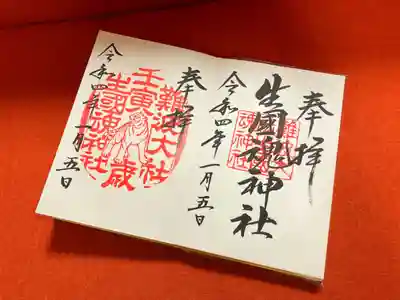 奉拝
生國魂神社
令和四年一月五日
奉拝
難波大社
壬寅歳
生國魂神社
令和四年一月五日